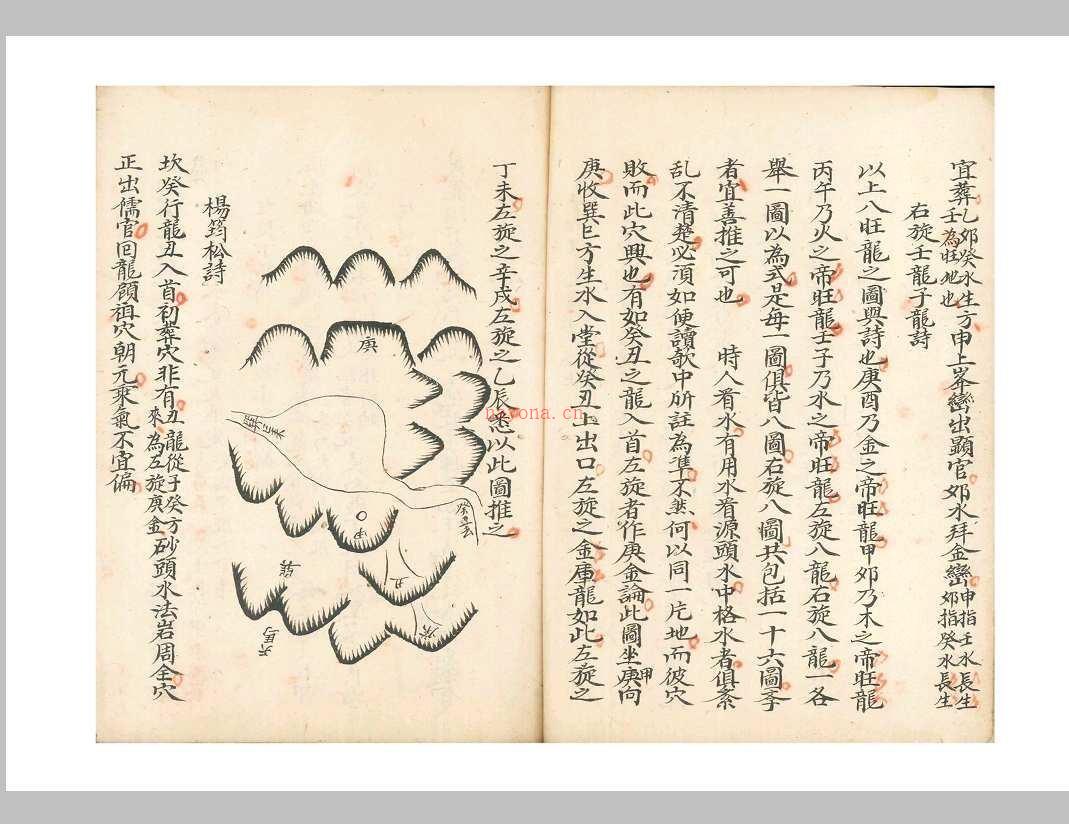 宜葬乙卯癸水生方申上峯巒出顯官卯水拜金巒申指壬水長生
卯指癸水長生
壬為旺地也
右旋壬龍子龍詩
以上八旺龍之圖與詩也庚酉乃金之帝旺龍甲卯乃木之帝旺龍
丙午乃火之帝旺龍壬子乃水之帝旺龍左旋八龍右旋八龍一各
舉一圖以為式是每一圖俱皆八圖右旋八圖共包括一十六圖
者宜善推之可也 時人看水有用水看源頭水中格水者俱紊
乱不清楚必須如便讀歌中所註為準不然何以同一片地而彼穴
敗而此穴興也有如癸丑之龍入首左旋者作庚金論此圖坐庚向甲
庚收巽巳方生水入堂從癸丑上出口左旋之金庫龍如此左旋之
丁未左旋之辛戌左旋之乙辰悉以此圖推之
庚
癸丑去
甲
丑
天馬
nayona.cn
楊筠松詩
坎癸行龍丑入首初葬穴非有丑龍從子癸方
來為左旋庚金
砂頭水法岩周全穴
正出儒官回龍顧祖穴朝元乘氣不宜偏